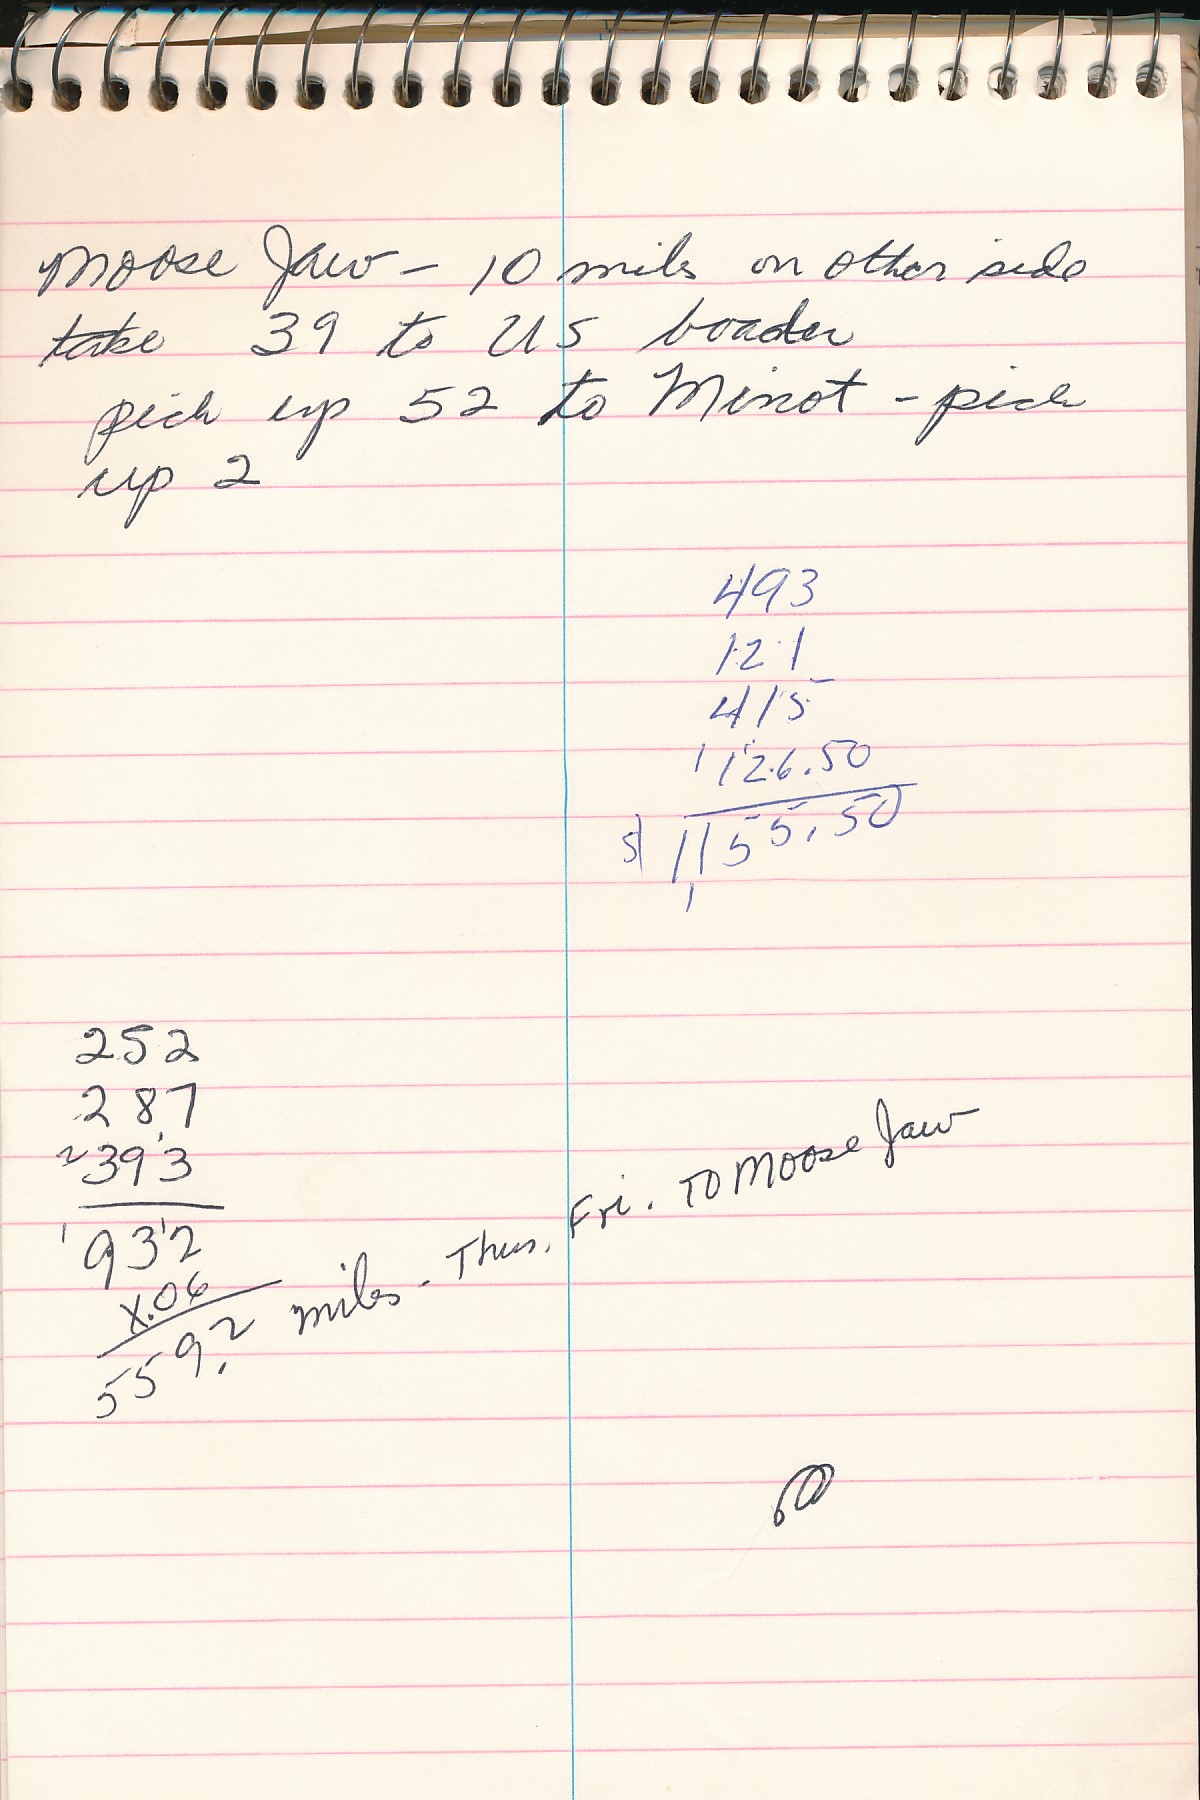 Moose Jaw - 10 miles on other side
take 39 to US boader
pick up 52 to Minot - pick
up 2
493
121
415
126.50
1155.50
252
287
393
932
x.06
559.2 miles - Thus. Fri. To Moose Jaw